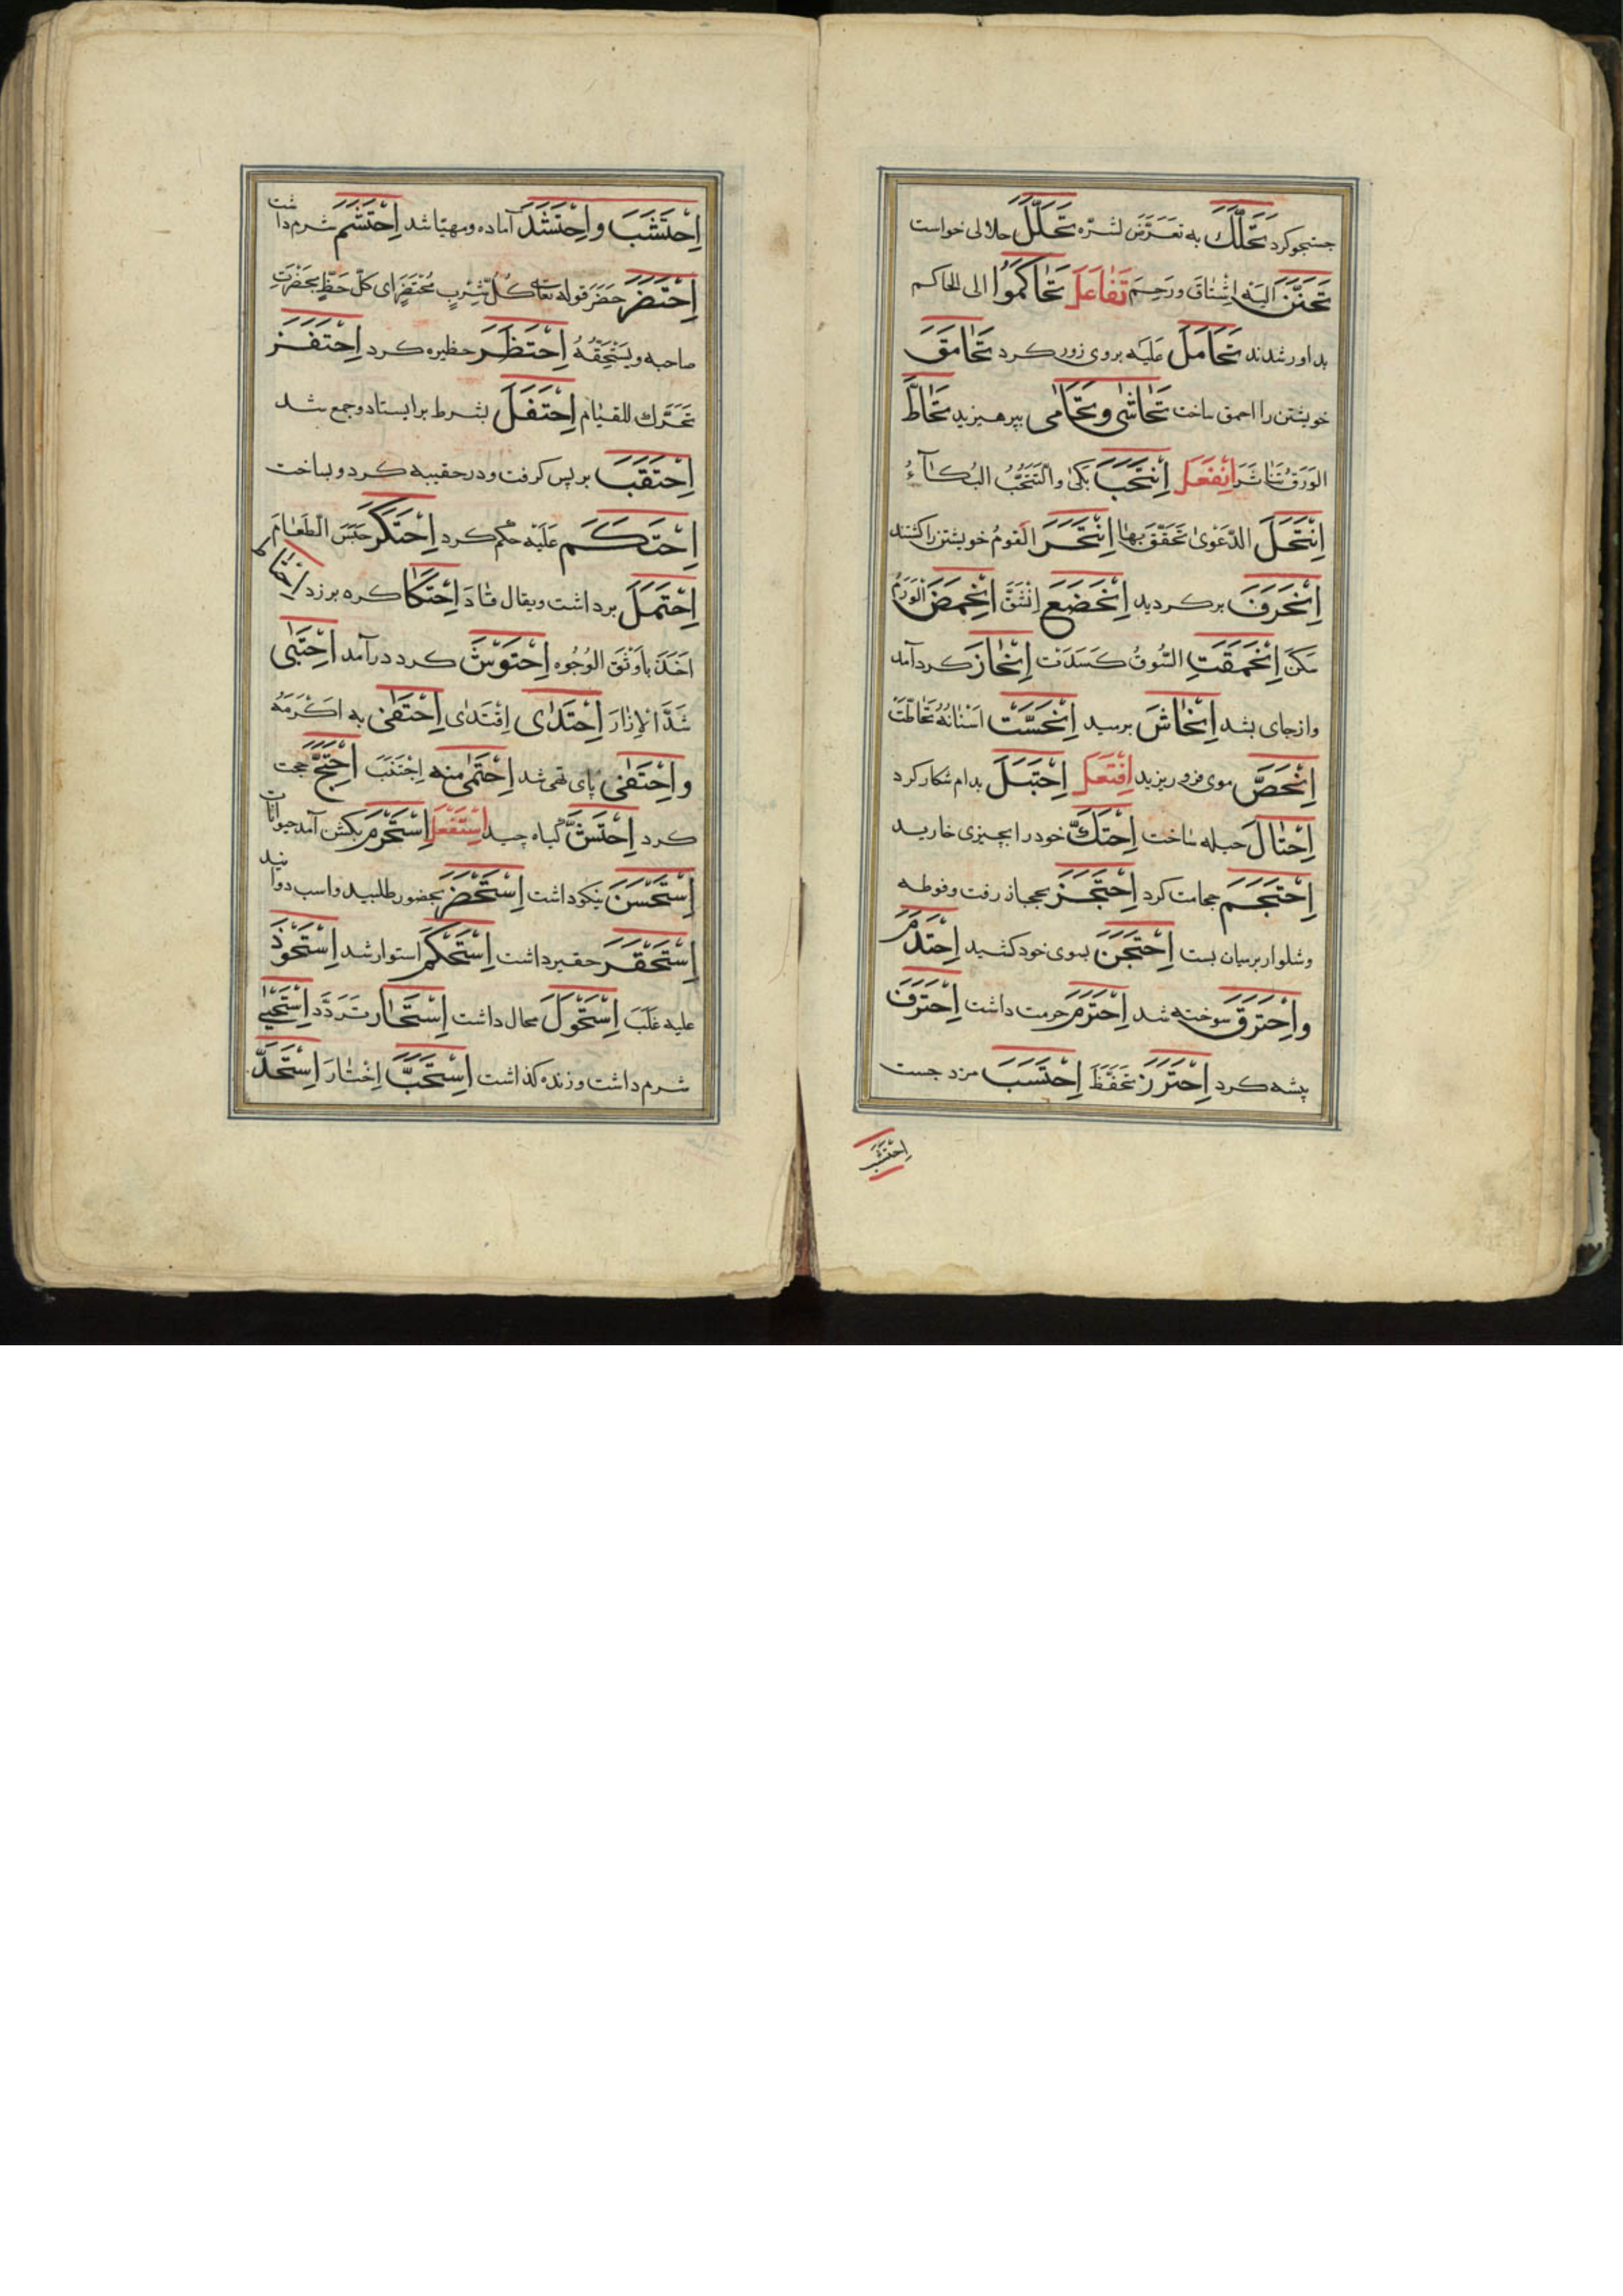 جستجو کرد تَحَكَّكَ به تَعَرَّضَ لشرّه تَحَلَّلَ حلالی خواست
تَحَنَّنَ اليه اِشْتاقَ ورَحِمَ تَفاعَلَ تَحاكَمُوا الی الحاکم
بداور شدند تَحامَلَ عَلَيْه بروی زور کرد تَحامَقَ
خویشتن را احمق ساخت تَحاشٰی وتَحامٰی بپرهیزید تَحاطَّ
الوَرَقُ تَناثَرَ اِنْفَعَلَ اِنْتَحَبَ بَکٰی والتَّنَحُّبُ البُكآءُ
اِنْتَحَلَ الدَّعْوىٰ تَحَقَّقَ بِهٰا اِنْتَحَرَ القومُ خویشتن را کشتند
اِنْحَرَفَ برکردید اِنْخَضَعَ اِنْحَمَضَ الوَرَمُ
سَكَنَ اِنْحَمَقَتِ السُّوقُ كَسَدَتْ اِنْحٰازَ کرد آمد
وازجای بشد اِنْحٰاشَ برسید اِنْحَسَّتْ اَسْنٰانُهُ تَحٰاطَّتْ
اِنْحَصَّ موی فرو ریزید اِفْتَعَلَ اِحْتَبَلَ بدام شکار کرد
اِحْتٰالَ حیله ساخت اِحْتَكَّ خود را بچیزی خارید
اِحْتَجَمَ حجامت کرد اِحْتَجَزَ بحجاز رفت وفوطه
وشلوار برمیان بست اِحْتَجَنَ بسوی خود کشید اِحْتَدَمَ
واِحْتَرَقَ سوخته شد اِحْتَرَمَ حرمت داشت اِحْتَرَفَ
پیشه کرد اِحْتَرَزَ تَحَفَّظَ اِحْتَسَبَ مزد جست
اِحْتَشَبَ
اِحْتَشَبَ واِحْتَشَدَ آماده ومهیّا شد اِحْتَشَمَ شرم داشت
اِحْتَضَرَ حَضَرَ قوله تعالی كُلُّ شِرْبٍ مُحْتَضَرٌ ای كلّ حَظٍّ بحَضْرَتِ
صاحبه ويَسْتَحِقّهُ اِحْتَظَرَ حظیره کرد اِحْتَفَزَ
تَحَرَّك للقيٰام اِحْتَفَلَ بشرط برایستاد وجمع شد
اِحْتَقَبَ برپس کرفت ودر حقیبه کرد وبساخت
اِحْتَكَمَ عَلَيْهِ حکم کرد اِحْتَكَرَ حَبَسَ الطَعٰامَ
اِحْتَمَلَ برداشت ویقال اِحْتَكَا کره برزد
اَخَذَ بِاَوْثَقِ الوُجُوه اِحْتَوَشَ کرد درآمد اِحْتَبٰی
شَدَّ الاِزٰارَ اِحْتَذٰی اِقْتَدٰی اِحْتَفٰی به اَكْرَمَهُ
واِحْتَفٰی پای تهی شد اِحْتَمٰی منه اِجْتَنَبَ اِحْتَجَّ حجت
کرد اِحْتَشَّ کیاه چید اِسْتَفْعَلَ اِسْتَحْرَمَ بکشن آمد حیوانات
اِسْتَحْسَنَ نیکو داشت اِسْتَحْضَرَ بحضور طلبید واسب دوانید
اِسْتَحْقَرَ حقیر داشت اِسْتَحْكَمَ استوار شد اِسْتَحْوَذَ
علیه غَلَبَ اِسْتَحْوَلَ محال داشت اِسْتَحٰارَ تَرَدَّدَ اِسْتَحْيٰی
شرم داشت وزنده کذاشت اِسْتَحَبَّ اِخْتٰارَ اِسْتَحَدَّ